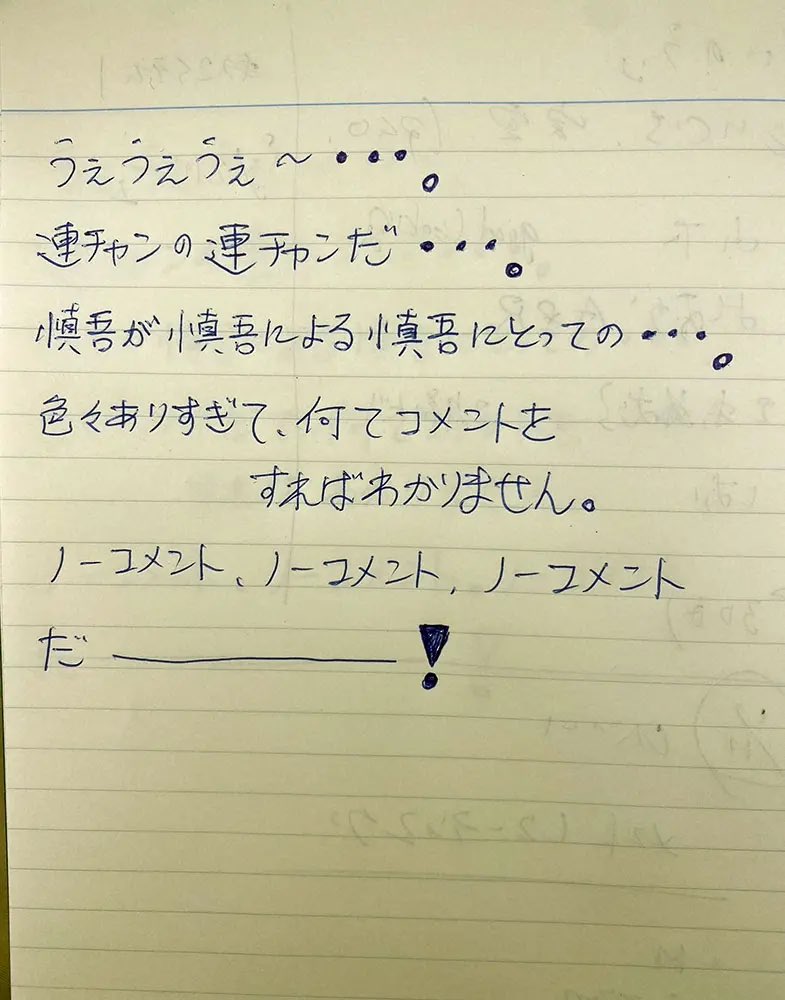 うぇうぇうぇ〜・・・。
連チャンの連チャンだ・・・。
慎吾が慎吾による慎吾にとっての・・・。
色々ありすぎて、何てコメントを
すればわかりません。
ノーコメント、ノーコメント、ノーコメント
だ―――――!